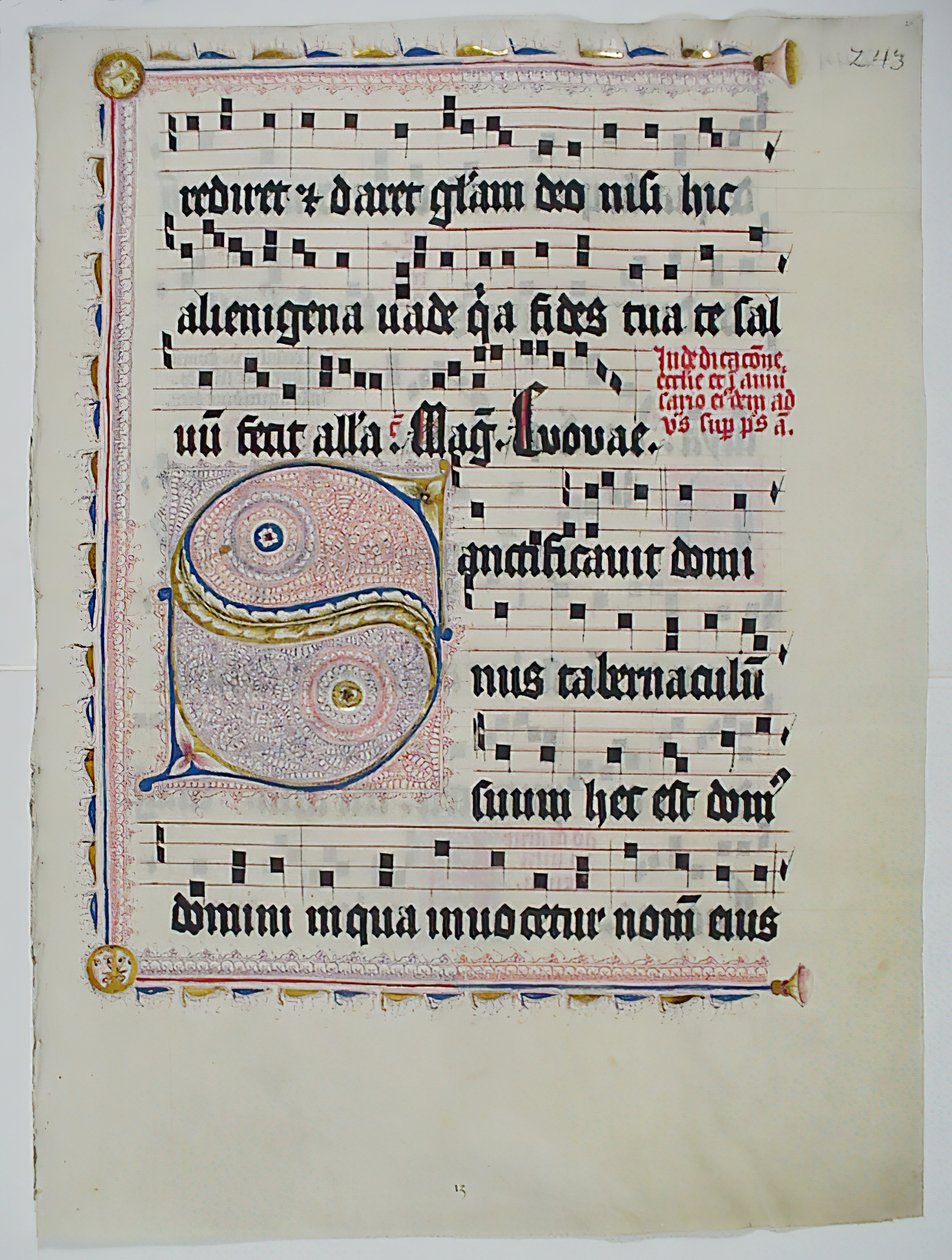 243
rediret ⁊ daret gl'am deo nisi hic
alienigena uade q̇a fides tua te sal
uū fecit all'a. c̄ Maḡ. Euouae.
In dedicacōne
ecclie et ī anni
sario eiꝰdem ad
vs̄ sup ps a̅.
Sanctificauit domi
nus tabernaculū
suum hec est domꝰ
domini in qua inuocetur nom̄ eius
13